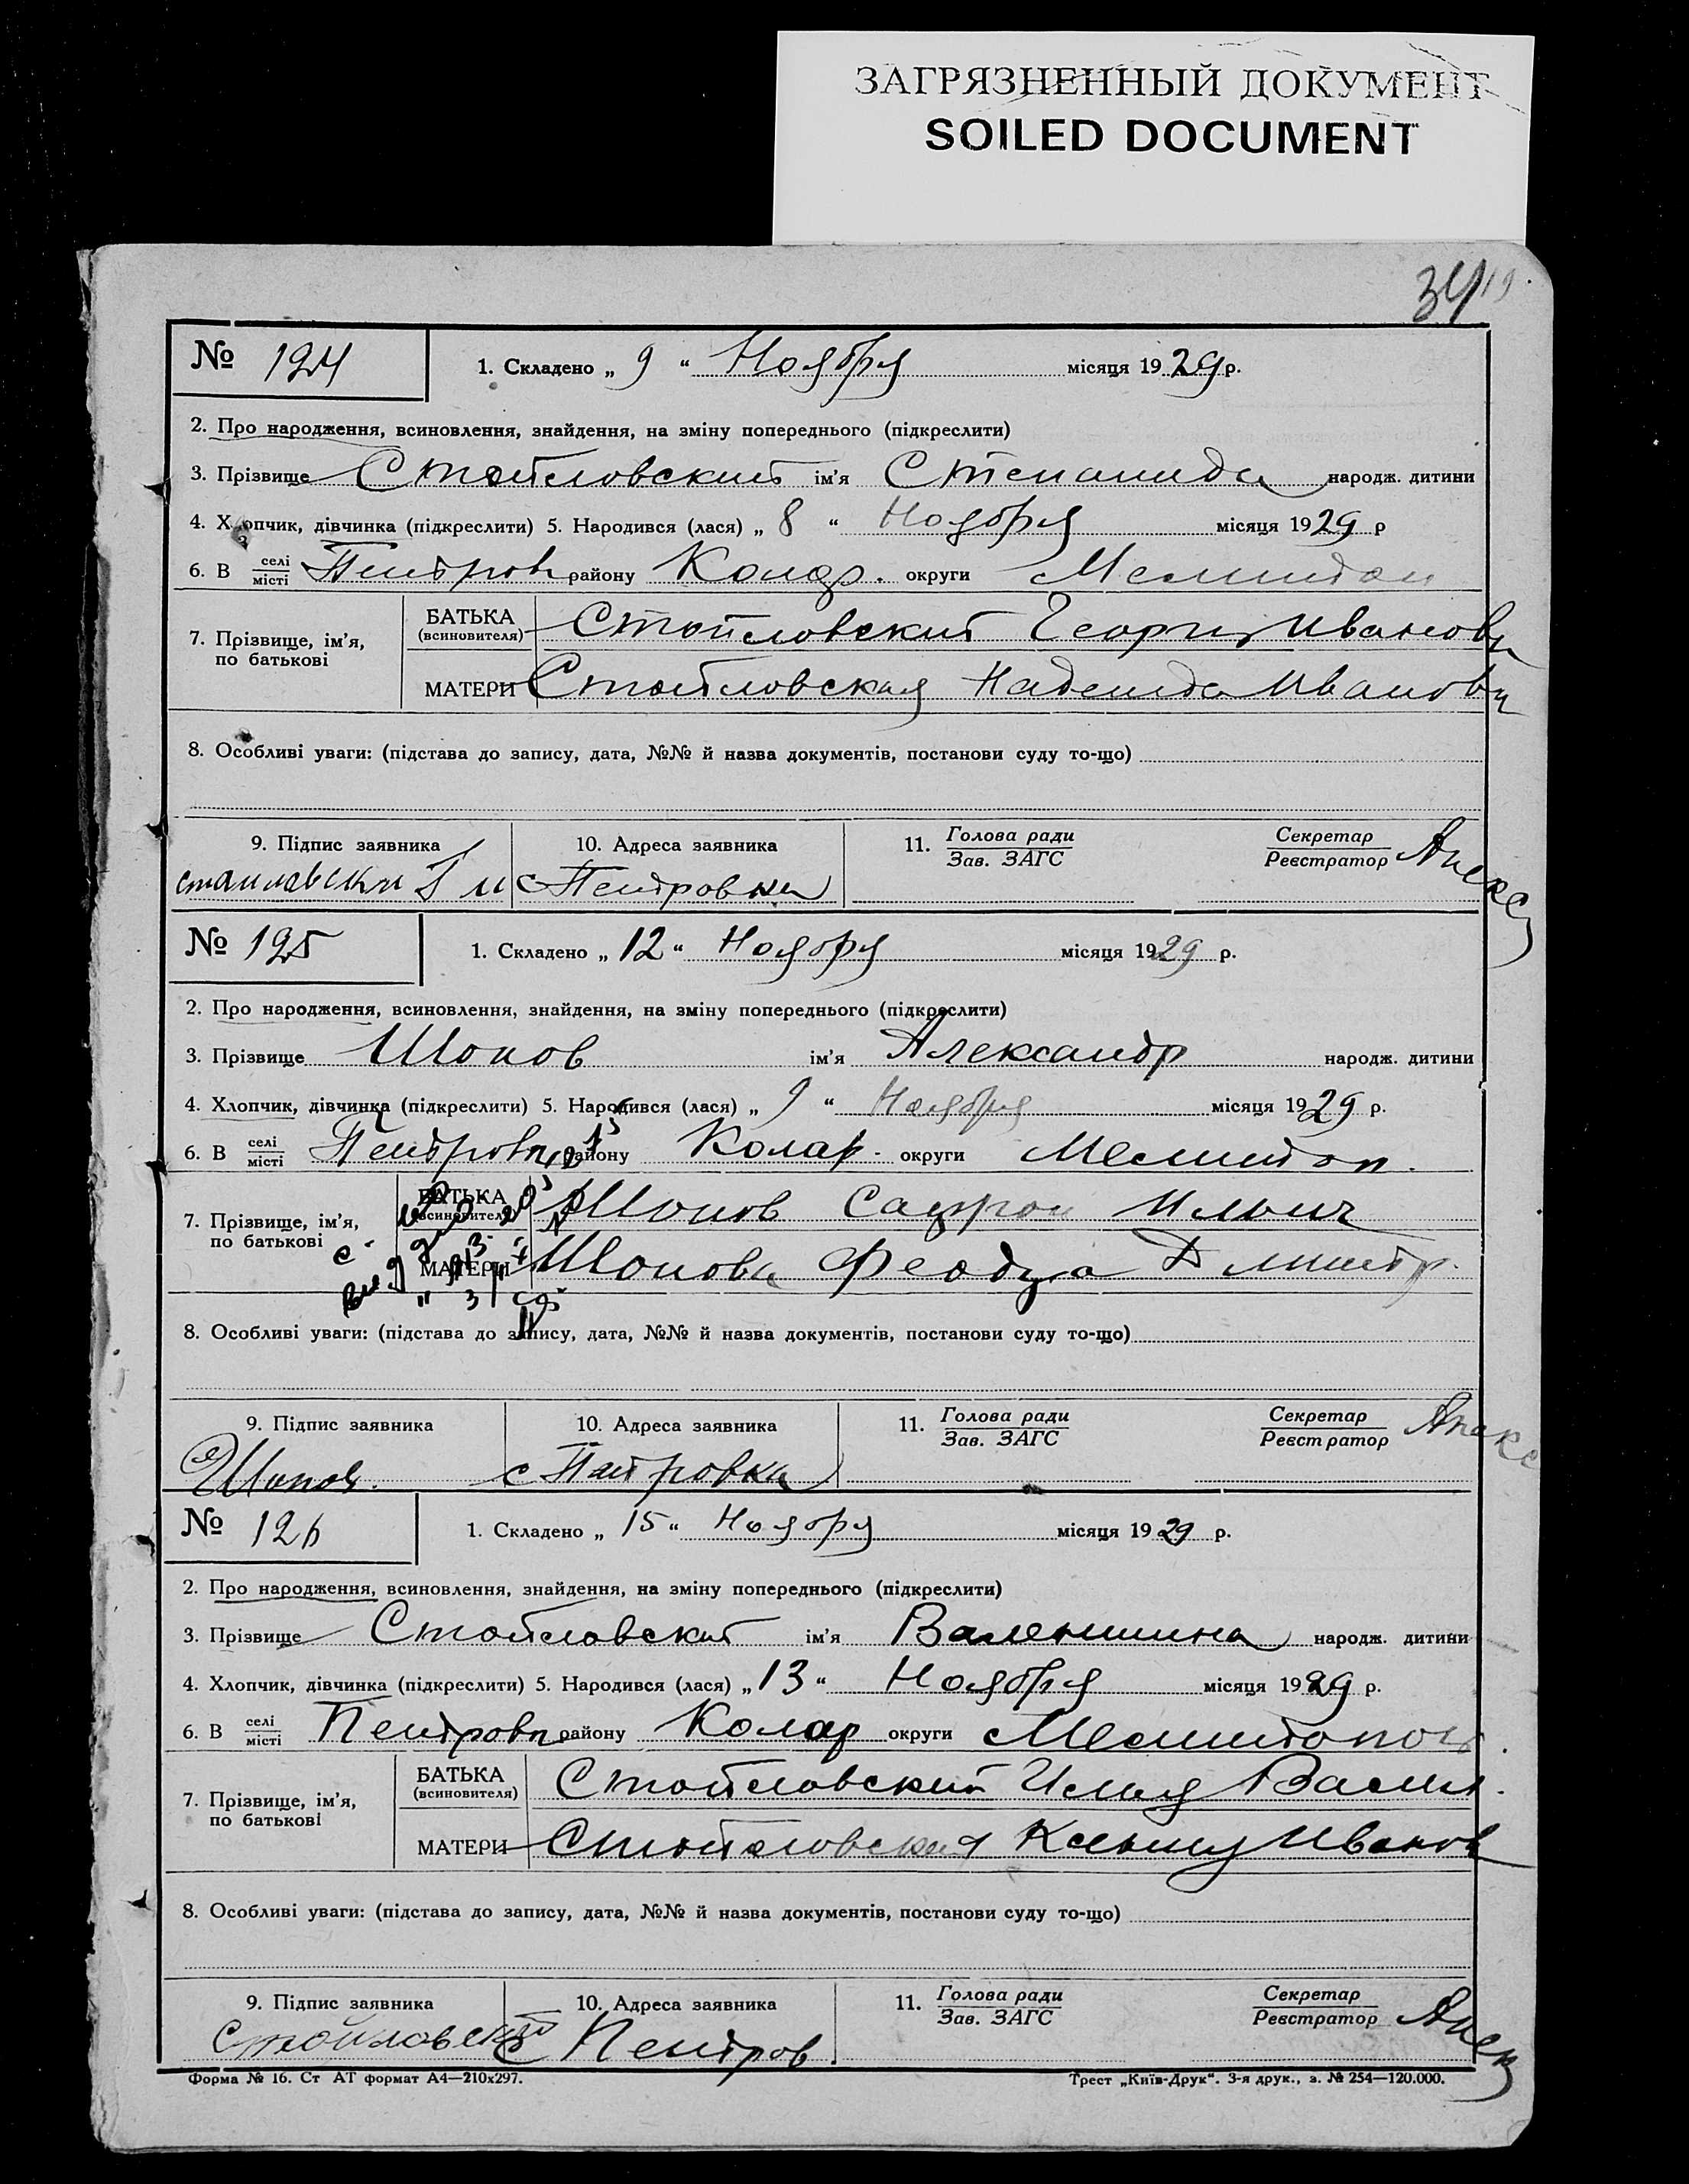 ЗАГРЯЗНЕННЫЙ ДОКУМЕНТ
SOILED DOCUMENT
34
№ 124 1. Складено „ 9 “ Ноября місяця 1929 р.
2. Про народження, всиновлення, знайдення, на зміну попереднього (підкреслити)
3. Прізвище Стойловский ім’я Степанида народж. дитини
4. Хлопчик, дівчинка (підкреслити) 5. Народився (лася) „ 8 “ Ноября місяця 1929 р
6. В селі місті Петровк району Колар. округи Мелитоп
7. Прізвище, ім’я, по батькові
БАТЬКА (всиновителя) Стойловский Георгий Иванови
МАТЕРИ Стойловская Надежда Иванови
8. Особливі уваги: (підстава до запису, дата, №№ й назва документів, постанови суду то-що)
9. Підпис заявника 10. Адреса заявника 11. Голова ради Зав. ЗАГС Секретар Реєстратор
с Петровка
№ 125 1. Складено „ 12 “ Ноября місяця 1929 р.
2. Про народження, всиновлення, знайдення, на зміну попереднього (підкреслити)
3. Прізвище Шопов ім’я Александр народж. дитини
4. Хлопчик, дівчинка (підкреслити) 5. Народився (лася) „ 9 “ Ноября місяця 1929 р.
6. В селі місті Петровк району Колар. округи Мелитоп.
7. Прізвище, ім’я, по батькові
БАТЬКА (всиновителя) Шопов Сафрон Ильич
МАТЕРИ Шопова Дмитр.
8. Особливі уваги: (підстава до запису, дата, №№ й назва документів, постанови суду то-що)
9. Підпис заявника 10. Адреса заявника 11. Голова ради Зав. ЗАГС Секретар Реєстратор
Шопов. с Петровка
№ 126 1. Складено „ 15 “ Ноября місяця 1929 р.
2. Про народження, всиновлення, знайдення, на зміну попереднього (підкреслити)
3. Прізвище Стойловский ім’я Валентина народж. дитини
4. Хлопчик, дівчинка (підкреслити) 5. Народився (лася) „ 13 “ Ноября місяця 1929 р.
6. В селі місті Петровк району Колар округи Мелитопол.
7. Прізвище, ім’я, по батькові
БАТЬКА (всиновителя) Стойловский Илья Васил.
МАТЕРИ Стойловская Иванов
8. Особливі уваги: (підстава до запису, дата, №№ й назва документів, постанови суду то-що)
9. Підпис заявника 10. Адреса заявника 11. Голова ради Зав. ЗАГС Секретар Реєстратор
Стойловский с Петров.
Форма № 16. Ст АТ формат А4—210х297. Трест „Київ-Друк“. 3-я друк., з. № 254—120.000.